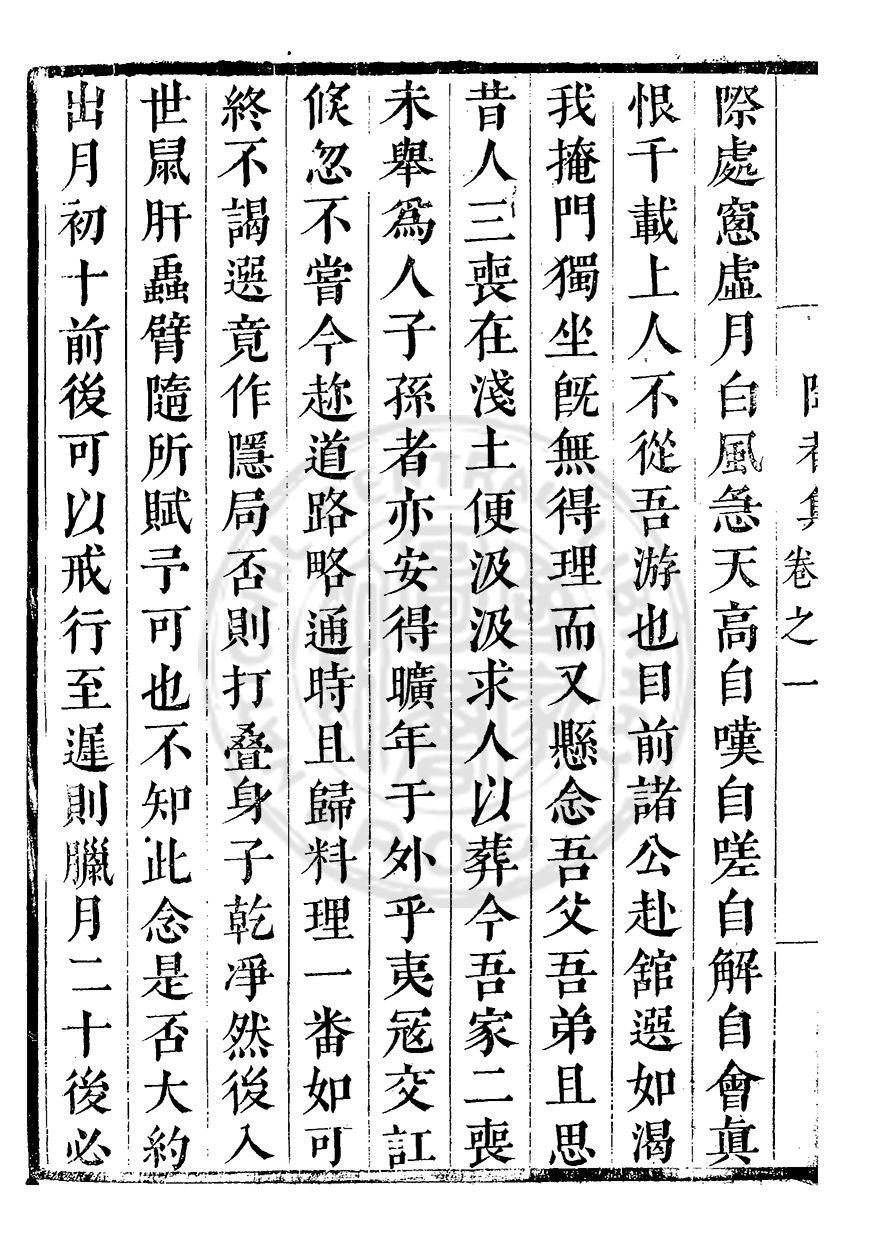 卷之一
際處窻虛月白風急天高自嘆自嗟自解自會眞
恨千載上人不從吾游也目前諸公赴舘選如渴
我掩門獨坐旣無得理而又懸念吾父吾弟且思
昔人三喪在淺土便汲汲求人以葬今吾家二喪
未舉爲人子孫者亦安得曠年于外乎夷冦交訌
倐忽不嘗今趂道路略通時且歸料理一番如可
終不謁選竟作隱局否則打叠身子乾凈然後入
世鼠肝蟲臂隨所賦予可也不知此念是否大約
出月初十前後可以戒行至遲則臘月二十後必